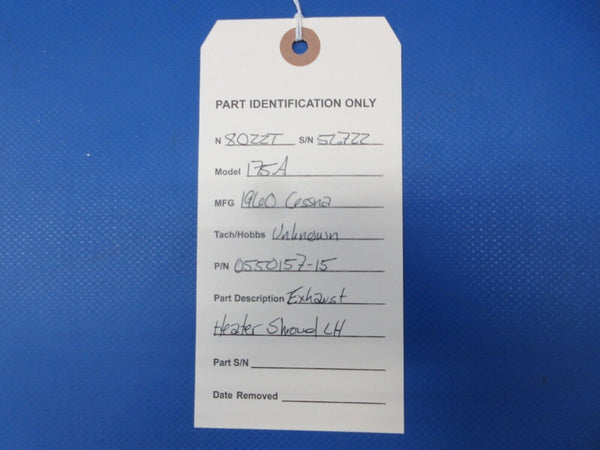 PART IDENTIFICATION ONLY
N 8022T S/N 56722
Model 175A
MFG 1960 Cessna
Tach/Hobbs Unknown
P/N 0550157-15
Part Description Exhaust
Heater Shroud LH
Part S/N
Date Removed